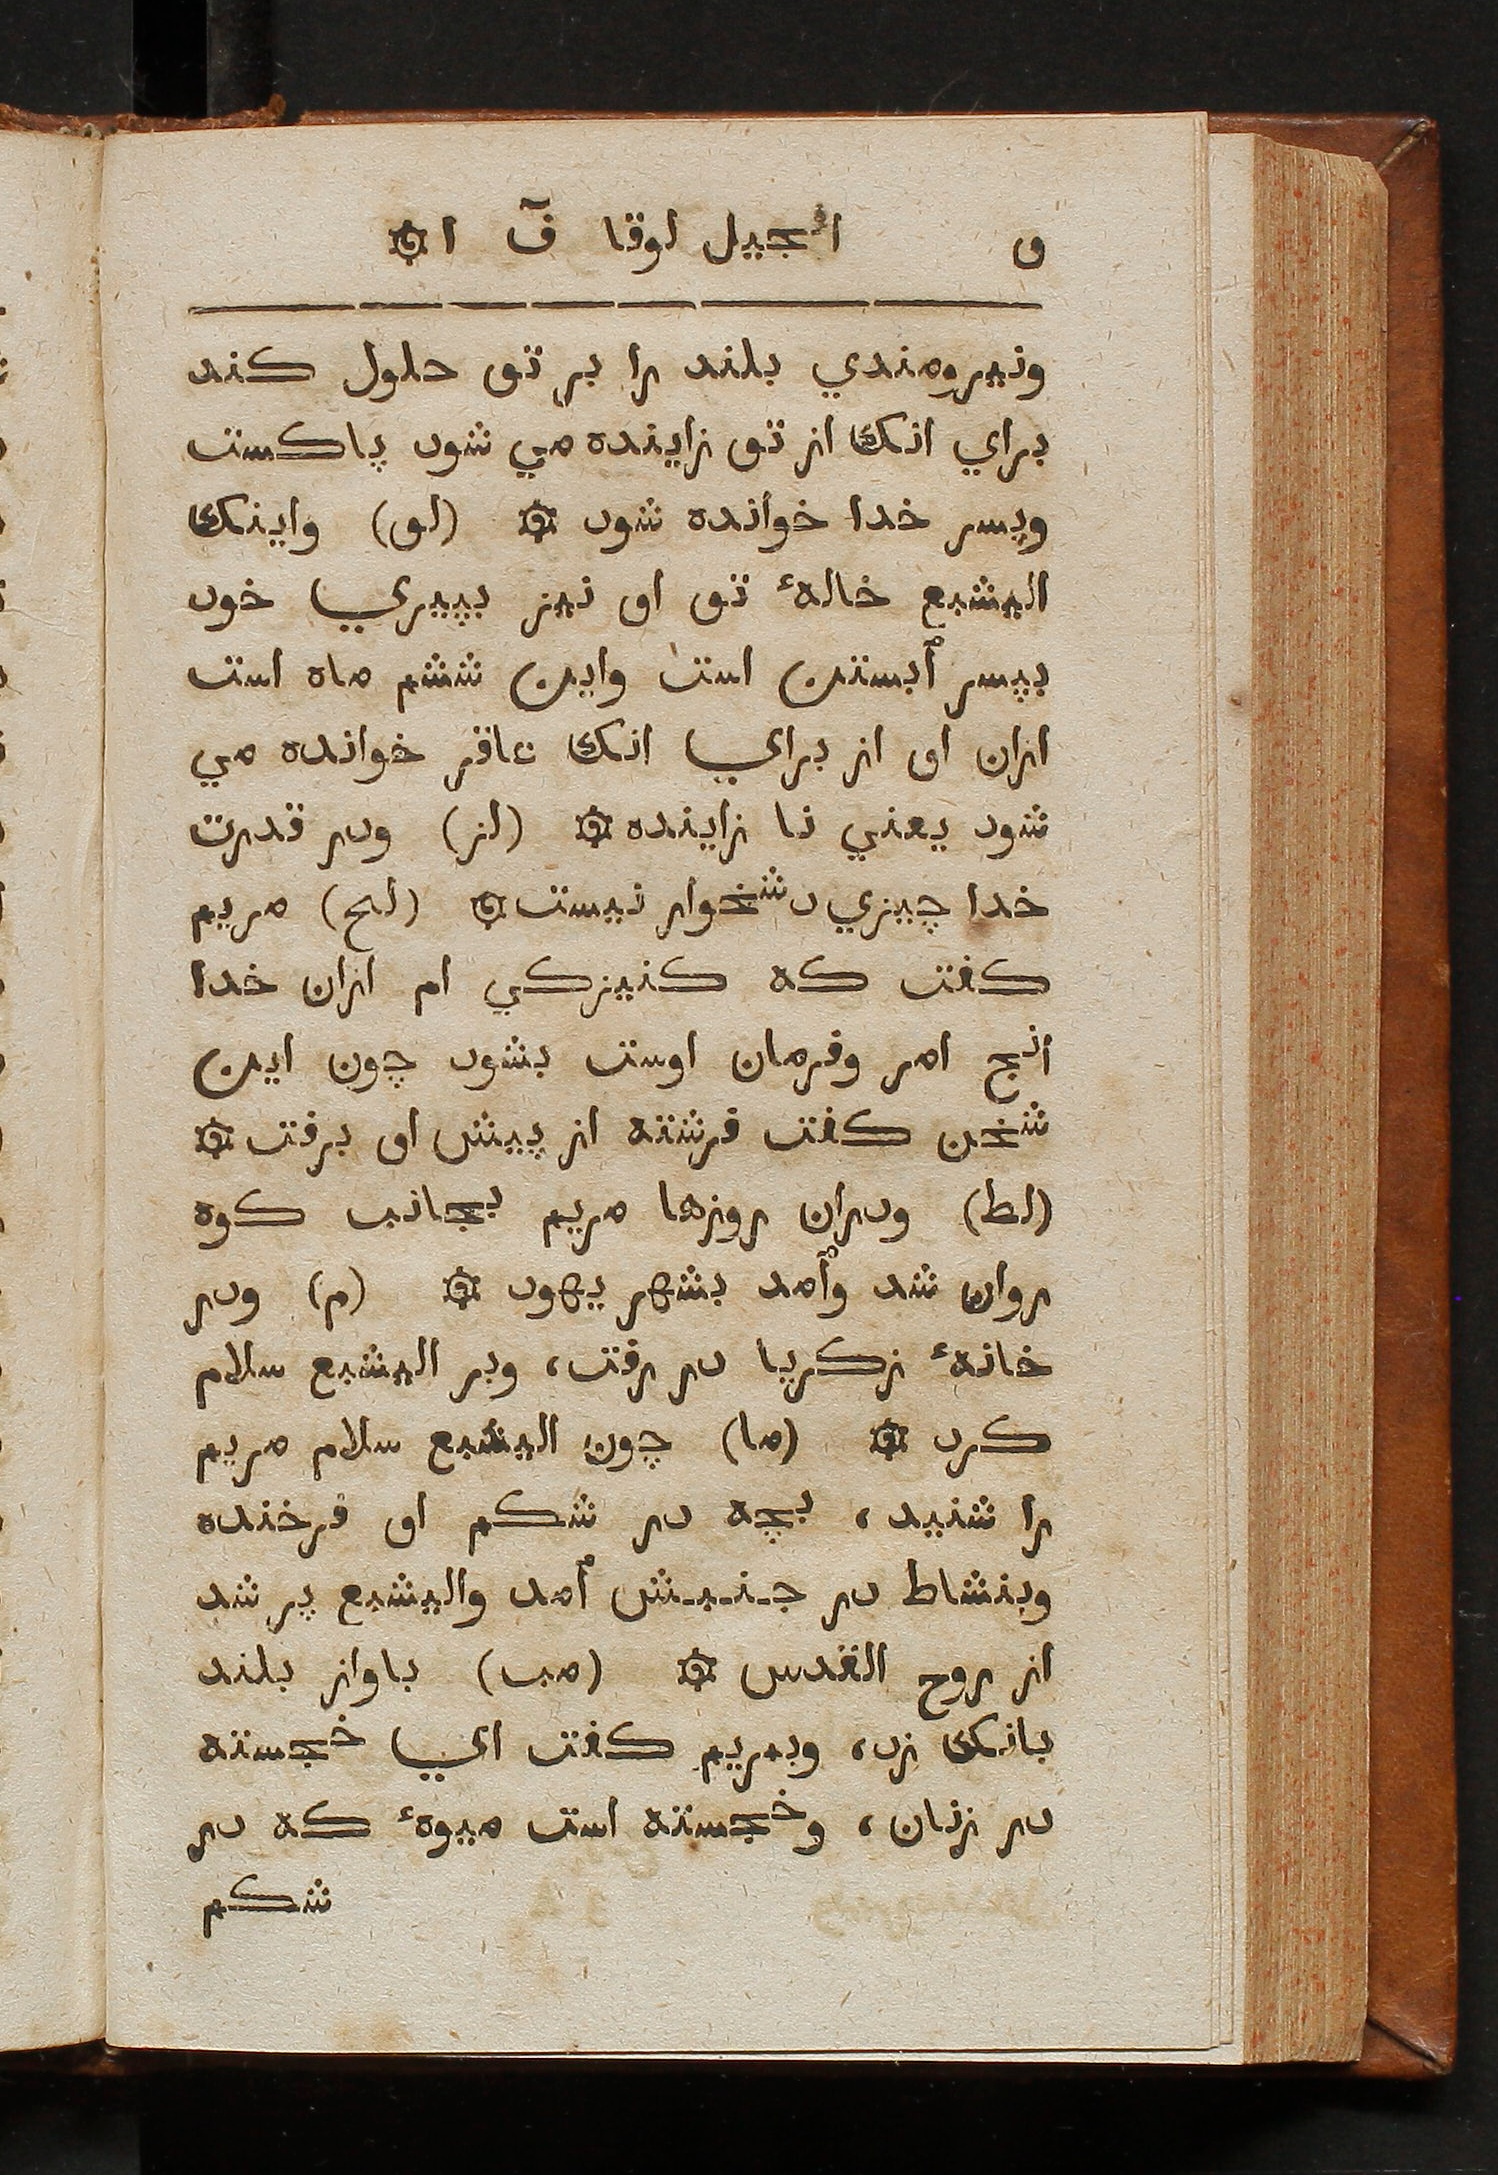 و انجيل لوقا فٓ ا ۞
ونيرومندي بلند را بر تو حلول كند
براي انك از تو زاينده مي شود پاكست
وپسر خدا خوانده شود ۞ (لو) واينك
اليشبع خالهٔ تو او نيز بپيري خود
بپسر آبستن است واين ششم ماه است
ازان او از براي انك عاقر خوانده مي
شود يعني نا زاينده ۞ (لز) ودر قدرت
خدا چيزي دشخوار نيست ۞ (لح) مريم
كفت كه كنيزكي ام ازان خدا
انچ امر وفرمان اوست بشود چون اين
شخن كفت فرشته از پيش او برفت ۞
(لط) ودران روزها مريم بجانب كوه
روان شد وآمد بشهر يهود ۞ (م) ودر
خانهٔ زكريا در رفت، وبر اليشبع سلام
كرد ۞ (ما) چون اليشبع سلام مريم
را شنيد، بچه در شكم او فرخنده
وبنشاط در جنبش آمد واليشبع پر شد
از روح القدس ۞ (مب) باواز بلند
بانك زد، وبمريم كفت اي خجسته
در زنان، وخجسته است ميوهٔ كه در
شكم